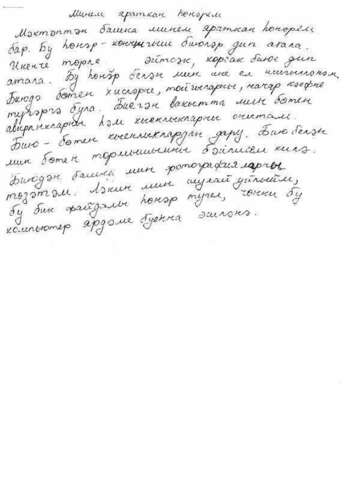 Минем яраткан һөнәрем
Мәктәптән башка минем яраткан һөнәрем
бар. Бу һөнәр - көнчыгыш биюләр дип атала.
Икенче төрле әйтсәк, корсак биюе дип
атала. Бу һөнәр белән мин ике ел шөгыльләнәм.
Биюдә бөтен хисләрне, тойгыларны, начар кәефне
түгәргә була. Биегән вакытта мин бөтен
авырлыкларны һәм кыенлыкларны онытам.
Бию - бөтен кыенлыклардан дару. Бию белән
мин бөтен тормышымны бәйлисем килә.
Биюдән башка мин фотографияләрны
төзәтәм. Ләкин мин шулай уйлыйм,
бу бик файдалы һөнәр түгел, чөнки бу
компьютер ярдәме буенча эшләнә.